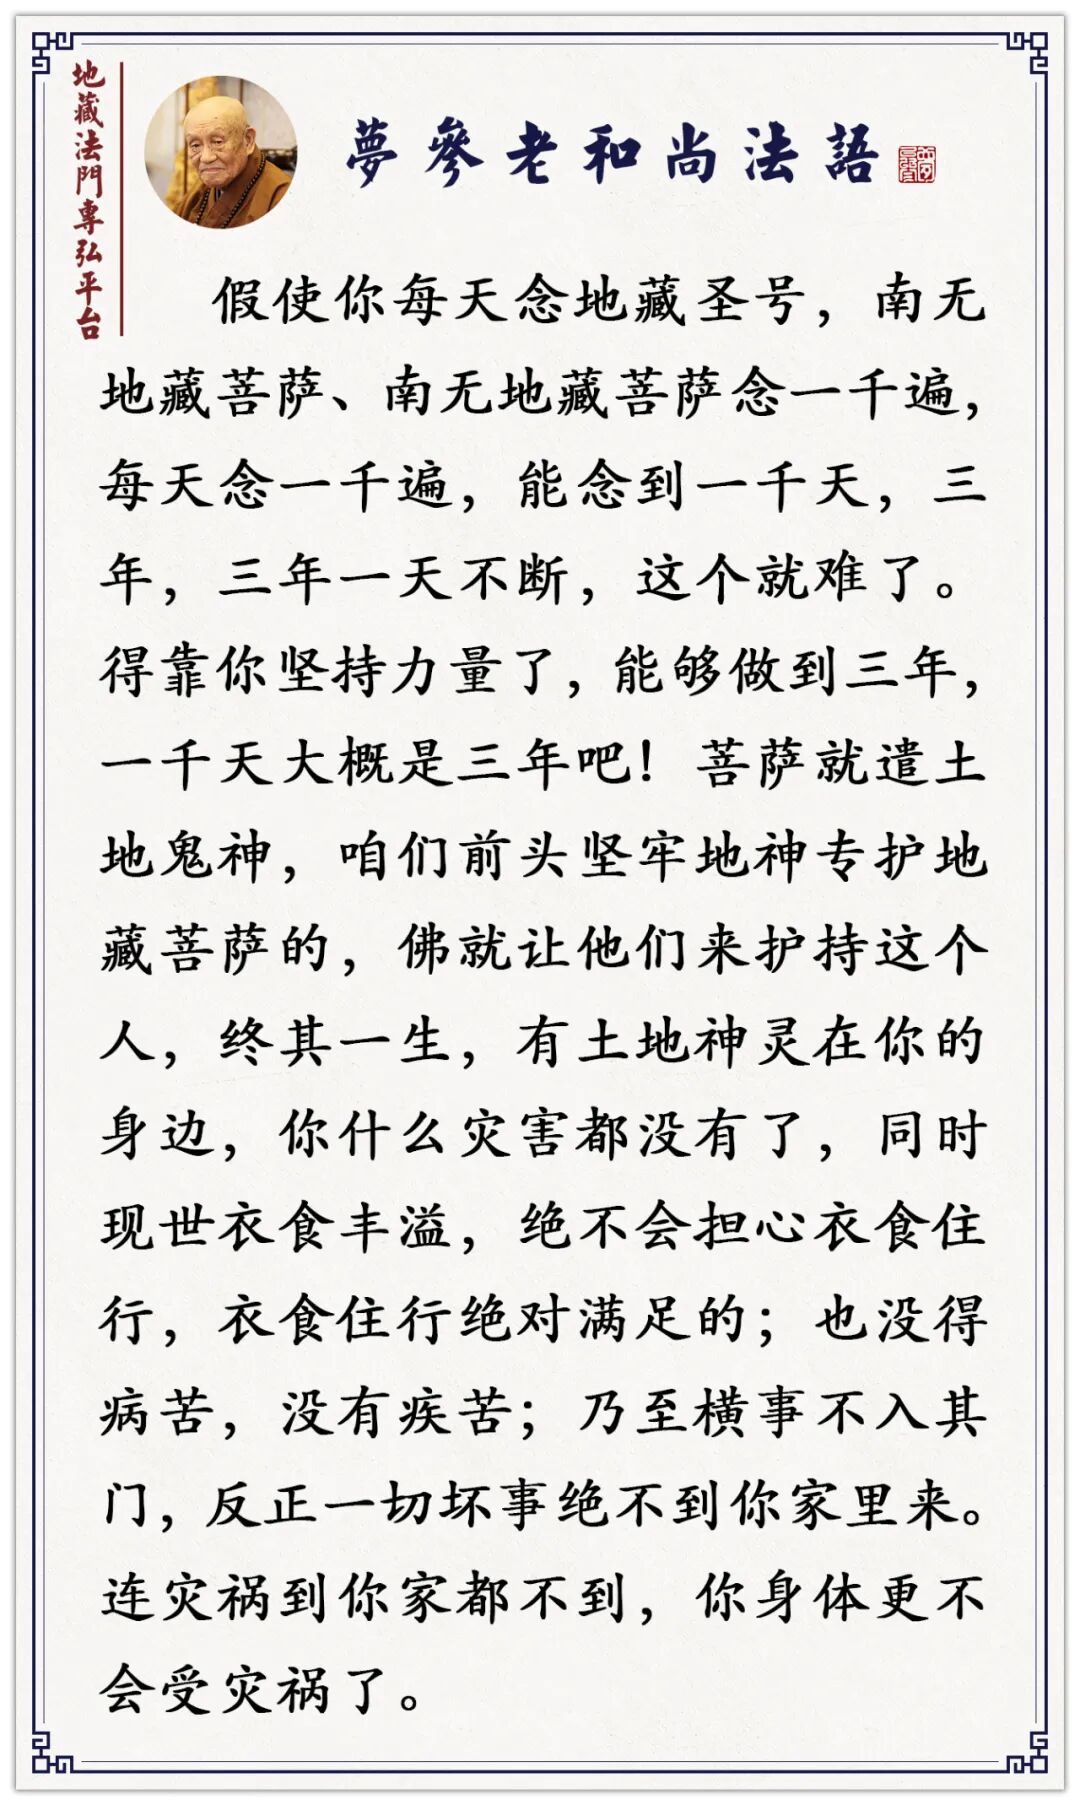 地藏法門專弘平台
夢參老和尚法語
假使你每天念地藏圣号，南无
地藏菩萨、南无地藏菩萨念一千遍，
每天念一千遍，能念到一千天，三
年，三年一天不断，这个就难了。
得靠你坚持力量了，能够做到三年，
一千天大概是三年吧！菩萨就遣土
地鬼神，咱们前头坚牢地神专护地
藏菩萨的，佛就让他们来护持这个
人，终其一生，有土地神灵在你的
身边，你什么灾害都没有了，同时
现世衣食丰溢，绝不会担心衣食住
行，衣食住行绝对满足的；也没得
病苦，没有疾苦；乃至横事不入其
门，反正一切坏事绝不到你家里来。
连灾祸到你家都不到，你身体更不
会受灾祸了。